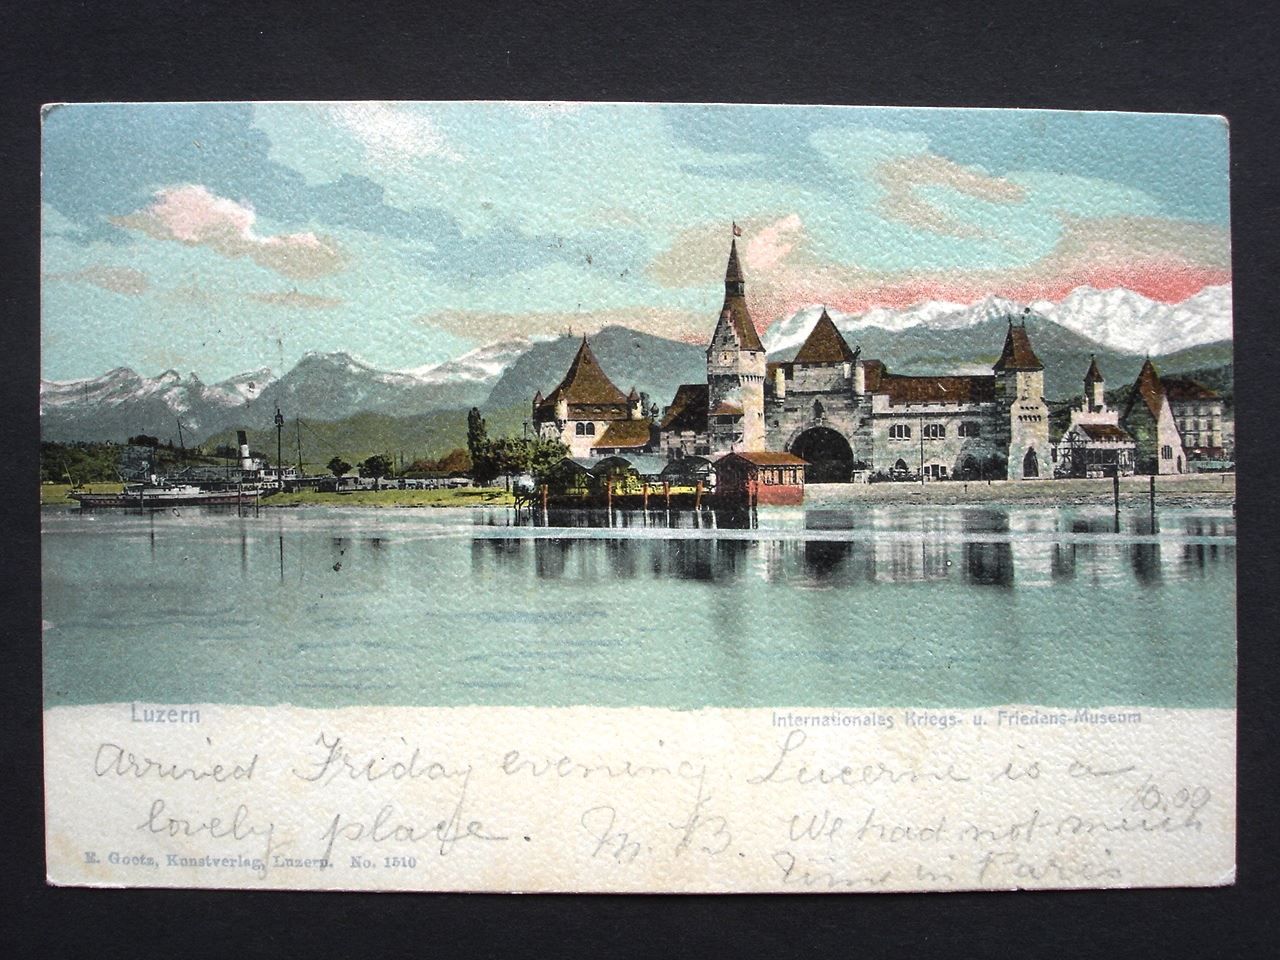 Luzern
Internationales Kriegs- u. Friedens-Museum
Arrived Friday evening. Lucerne is a
lovely place. M. B. We had not much
time in Paris
10.00
E. Goetz, Kunstverlag, Luzern. No. 1510